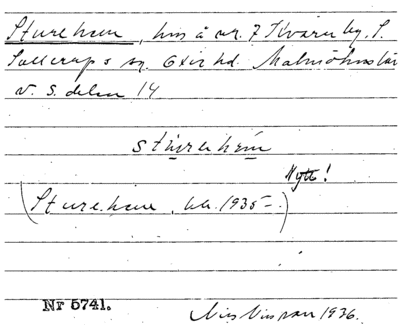 Sturehem, hus å nr. 7 Kvarnby, S.
Sallerups sn. Oxie hd. Malmöhus län
v. S. delen 14
stu̲rehe̲m
Nytt!
(Sturehem, bl. 1935-.)
Nr 5741.
Nils Nilsson 1936.